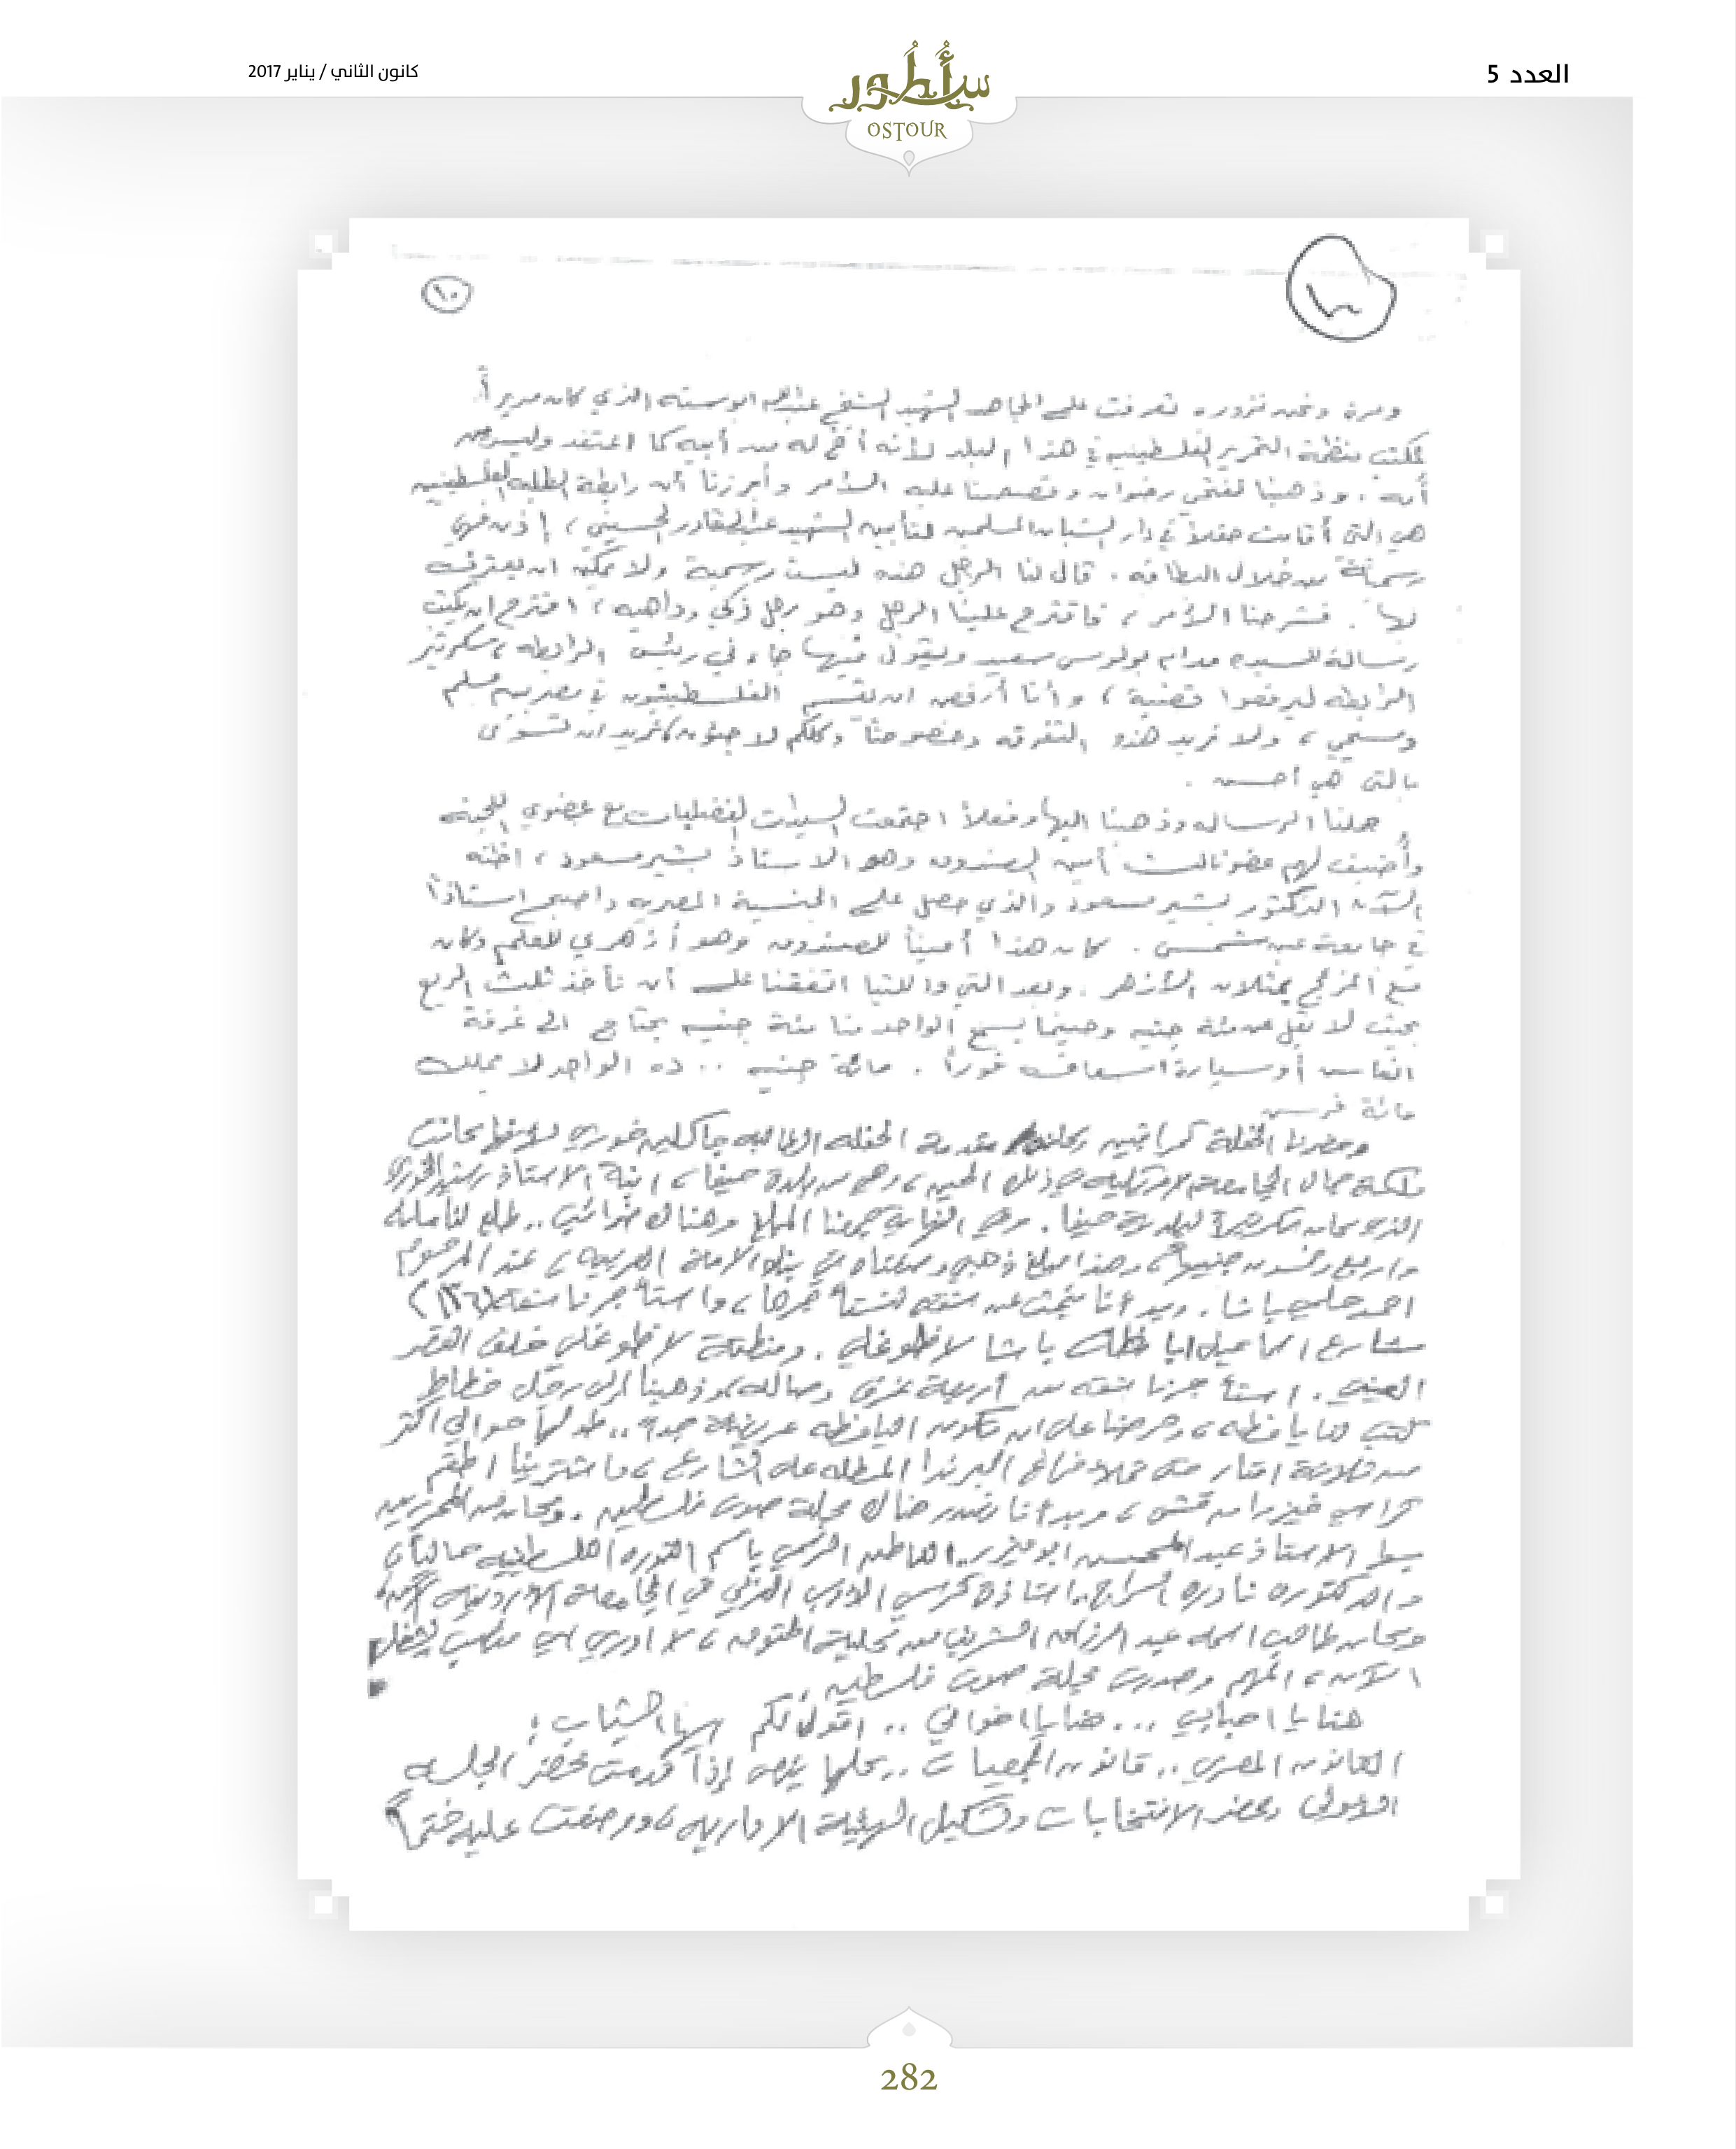 العدد 5
كانون الثاني / يناير 2017
أسطور
OSTOUR
١٠
ومرة ونحن نزوره تعرفت على المجاهد الشهيد الشيخ ابو سته الذي كان مديراً
لمكتب منظمة التحرير الفلسطينيه في هذا البلد لأنه أخ له من أبيه كما اعتقد وليس من
أمه . وذهبنا لفتحي رضوان وقصصنا عليه الأمر وأبرزنا أن رابطة الطلبه الفلسطينيين
هي التي أقامت حفلاً في دار الشبان المسلمين لتأبين الشهيد عبد القادر الحسيني ، إذن فهي
رسمية من خلال البطاقه . قال لنا الرجل هذه ليست رسمية ولا يمكن ان يعترف
بها . فشرحنا الأمر ، فاقترح علينا الرجل وهو رجل ذكي وداهيه ، اقترح ان يكتب
رسالة للسيده مدام بولوس سعيد ويقول فيها جاءني رئيس الرابطه ، سكرتير
الرابطه ليرفعوا قضية ، وأنا أرفض ان يقسم الفلسطينيون في مصر بين مسلم
ومسيحي ، ولا نريد هذه التفرقه وخصوصاً وكلكم لاجئون نريد ان تسوى
بالتي هي أحسن .
حملنا الرساله وذهبنا اليها وفعلاً اجتمعت السيدات الفضليات مع عضوي اللجنه
وأضيف لهم عضو ثالث أمين الصندوق وهو الاستاذ بشير مسعود ، اظنه
الآن الدكتور بشير مسعود والذي حصل على الجنسية المصريه واصبح استاذاً
في جامعة عين شمس . كان هذا أميناً للصندوق وهو أزهري للعلم وكان
مع المزعج يمثلان الأزهر . وبعد التي واللتيا اتفقنا على أن نأخذ ثلث الريع
بحيث لا يقل عن مئة جنيه وحينما يسمع الواحد منا مئة جنيه يحتاج الى غرفة
انعاش أو سيارة اسعاف فوراً . مائة جنيه .. ده الواحد لا يملك
مائة قرش
وحضرنا الحفلة كمراقبين وكانت مقدمة الحفله الطالبه جاكلين خوري لأنها كانت
ملكة جمال الجامعة الامريكيه في ذلك الحين ، وهي من بلدة حيفا ، ابنة الاستاذ رشيد الخوري
الذي كان سكرتيراً لبلدية حيفا . وفي النهايه جمعنا المبلغ وهناك ضرائب .. طلع لنا مايه
واربع وخمسون جنيها ، وهذا مبلغ ذهبي وضعناه في بنك الامة العربيه ، عند المرحوم
احمد حلمي باشا . وبدأنا نبحث عن شقه لنستأجرها ، واستأجرنا شقه (٢٦)
شارع اسماعيل اباظه باشا لاظوغلي . ومنطقة لاظوغلي خلف القصر
العيني . استأجرنا شقه من أربعة غرف وصاله ، وذهبنا الى رجل خطاط
كتب لنا يافطه ، وحرصنا على ان تكون اليافطه عريضة جدا .. طولها حوالي اكثر
من ثلاثة امتار حتى تملأ فراغ البرندا المطله على الشارع ، واشترينا اطقم
كراسي خيزران قش ، وبدأنا نصدر هناك مجلة صوت فلسطين . وكان من المحررين
الاستاذ عبد المحسن ابو ميزر الناطق الرسمي باسم الثوره الفلسطينيه حالياً ،
والدكتوره نادره السراج استاذة كرسي الادب في الجامعة الاردنية
وكان طالب اسمه عبد الرزاق الشريف من كلية الحقوق ، لا ادري اي منصب يشغل
الآن ، المهم وصدرت مجلة صوت فلسطين .
هنا يا احبابي ... هنا يا اخواني .. اقول لكم ايها الشباب :
القانون المصري .. قانون الجمعيات .. كلها ينص إذا محضر الجلسه
الاولى ومحضر الانتخابات وتشكيل الهيئة الاداريه ، ووضعت عليه ختماً
282